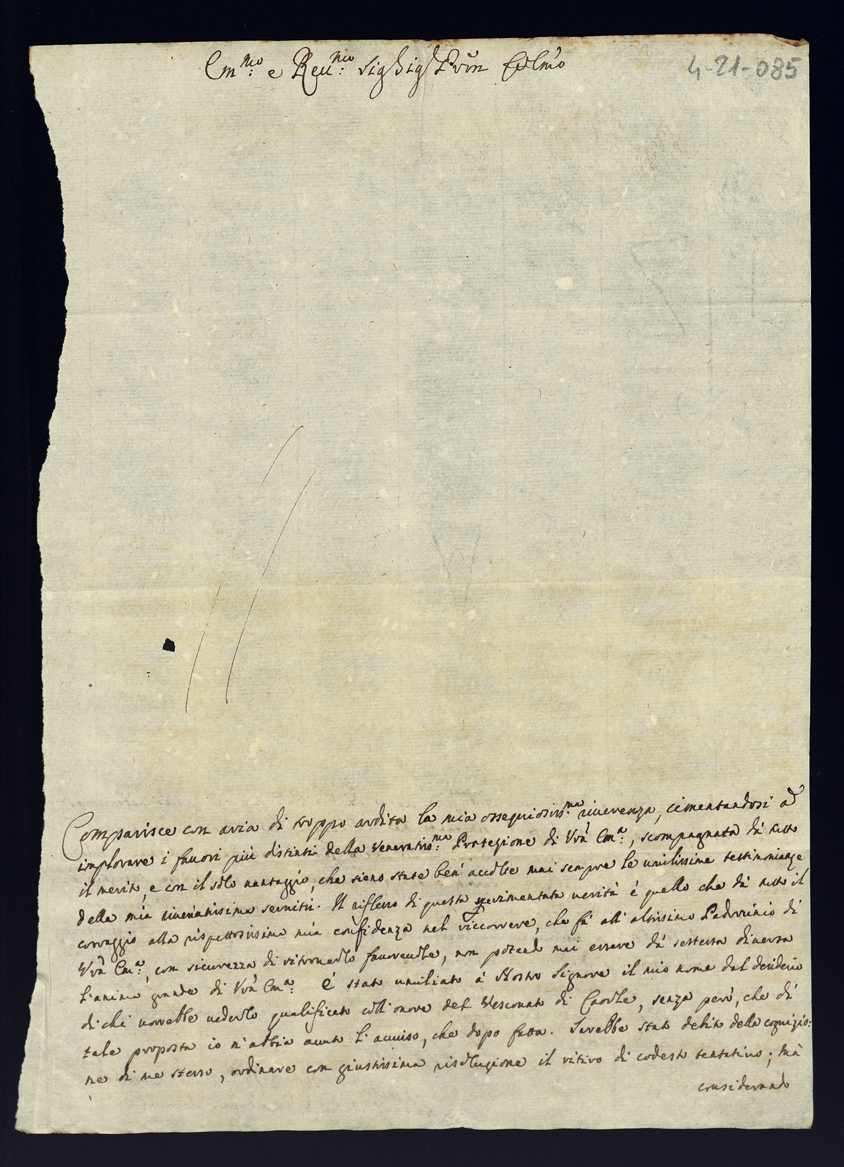 Em:mo e Rev:mo Sig Sig Pron Colmo
4-21-085
Comparisce con aria di troppo ardita la mia ossequiosis:ma riverenza, cimentandosi ad
implorare i favori più distinti della veneratis:ma Protezione di Vrã Em:a, scompagnata dà tutto
il merito, e con il solo vantaggio, che sieno state ben accolte mai sempre le umilissime testimonianze
della mia inviatissima servitù. Il riflesso di questa sperimentata verità è quello che dà tutto il
corraggio alla rispettosissima mia confidenza nel riccorrere, che fà all' altissimo Padrocinio di
Vrã Em:a, con sicurezza di ritrovarlo favorevole, non potend mai errare dà sestessa
l'anima grande di Vrã Em:a. È stato umiliato à Nostro Signore il mio nome dal desiderio
di chi vorrebbe vederlo qualificato coll' onore del Vescovato di Caorle, senza però, che di
tale proposta io n' abbia avuto l' avviso, che dopo fatta. Sarebbe stato debito della cognizio:
ne di me stesso, ordinare con giustissima risoluzione il ritiro di codesto tentativo; mà
considerando